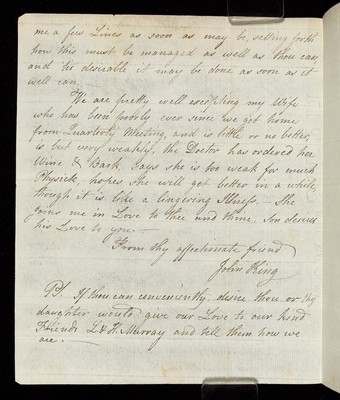 me a few Lines as soon as may be, setting forth
how this must be managed as well as thou can,
and tis desirable it may be done as soon as it
well can.
We are pretty well excepting my Wife
who has been poorly ever since we got home
from Quarterly Meeting, and is little or no better,
is but very weakly, the Doctor has ordered her
Wine & Bark, Says she is too weak for much
Physick, hopes she will get better in a while,
though it is like a lingering Illness. — She
joins me in Love to thee and thine. Son desires
his Love to you —
From thy affectionate friend
John King
PS. If thou can conveniently, desire thou or thy
daughter would give our Love to our kind
Friends L & H. Murray and tell them how we
are. —